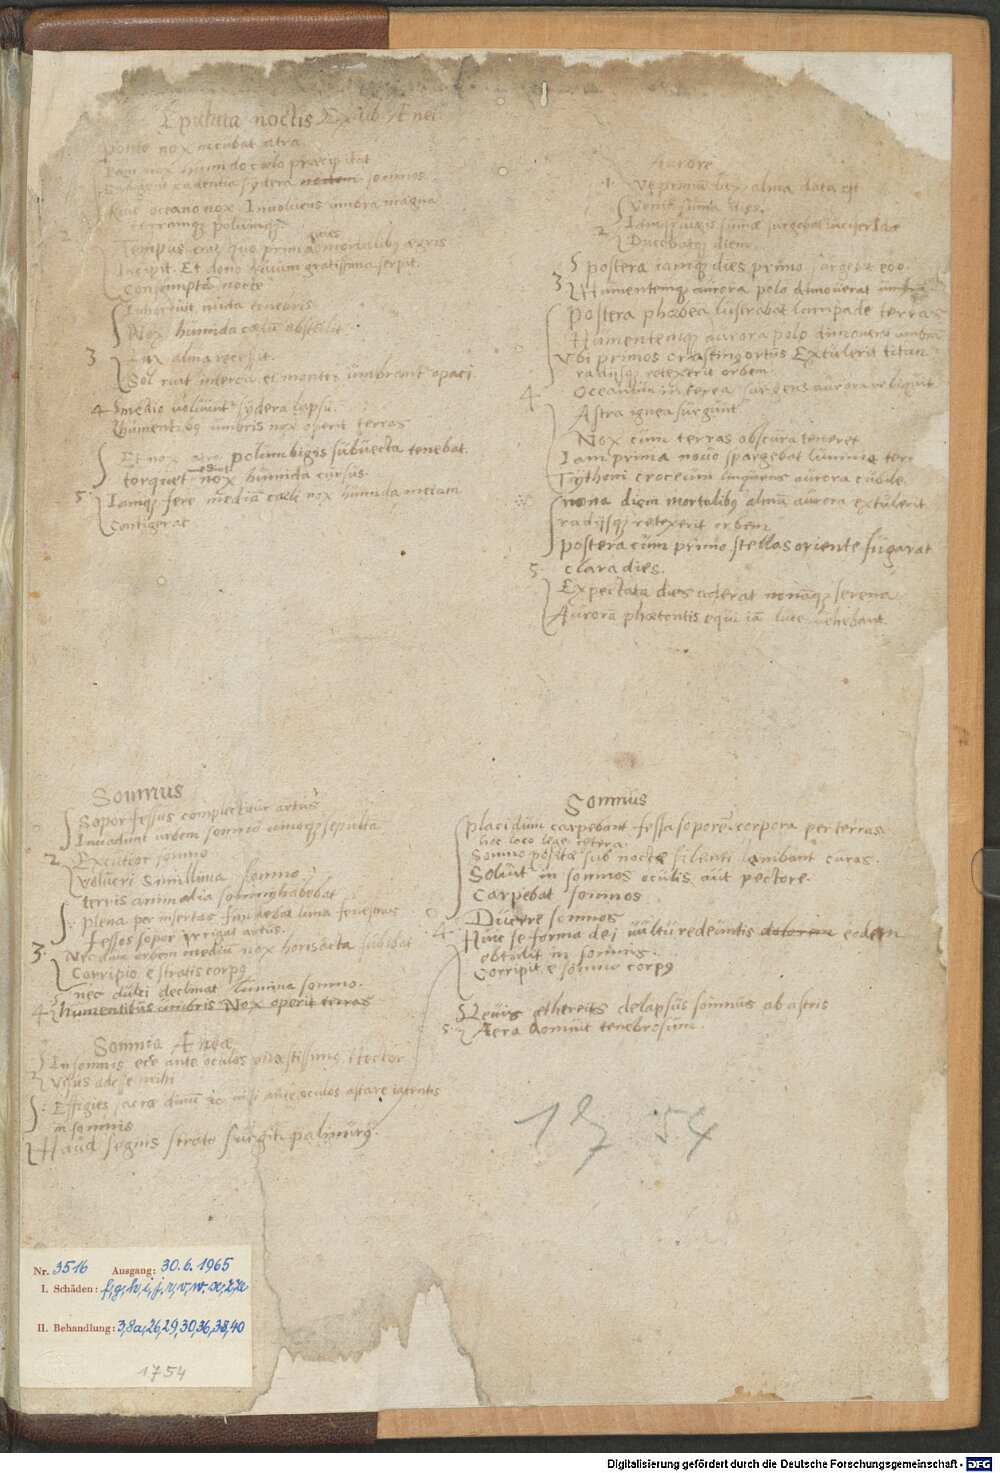 Epitheta noctis Ex lib Ænei
ponto nox incubat atra
Iam nox humido cælo præcipitat
Suadent cadentia sydera somnos
Ruit oceano nox Involuens umbra magna
terramq; polumq;
2 Tempus erat quo prima quies mortalibq ægris
Incipit. Et dono divum gratissima serpit.
consumpta nocte
Inhorruit unda tenebris
Nox humida cælū abstulit
3 Lux alma recessit.
Sol ruit interea et montes umbrant͛ opaci
4 medio voluunt͛ sydera lapsu.
humentibq umbris nox operit terras
Et nox atra polum bigis subuecta tenebat.
torquet medios nox humida cursus.
5 Iamq; fere mediā cæli nox humida metam
Contigerat
Auroræ
1. Vt primū lux alma data est
Iamq; iugis summæ surgebat lucifer Idæ
2 Ducebatq; diem.
postera iamq; dies primo surgebat eoo.
3 Humentemq; aurora polo dimouerat umbrā
Postera phœbea lustrabat lampade terras
Humentemq; aurora polo dimouerat umbrā
Vbi primos crastinq ortus Extulerit titan
radijsq; retexerit orbem
4. Oceanum interea surgens aurora reliquit.
Astra ignea surgunt.
Nox cum terras obscura teneret
Iam prima nouo spargebat lumine terr
Tythoni croceum linquens aurora cubile.
nona diem mortalibq almū aurora extulerit
radijsq; retexerit orbem
postera cum primo stellas oriente fugarat
5. clara dies.
Expectata dies aderat nonāq; serena
Aurorā phœtontis equi iā luce vehebant.
Somnus
Sopor fessus complectitur artus
Inuadunt urbem somno uinoq; sepultā
2. Excutior somno
Volucri simillima somno
terris animalia somnq habebat
plena per insertas fundebat luna fenestras
fessos sopor irrigat artus.
3. Nec dum orbem mediū nox horis acta subibat
Corripio e stratis corpq
nec dulci declinat lumina somno.
4. humentibus umbris Nox operit terras
Somnia Æneæ
In somnis ecce ante oculos mæstissimq Hector
2 Visus adesse mihi
Effigies sacræ diuū
in somnis
Haud segnis strato surgit palinurq.
Somnus
placidum carpebant fessa soporē corpora per terras
hoc loco lege cetera.
Somno positæ sub nocte silenti lenibant curas.
Soluit͛ in somnos oculis aut pectore.
Carpebat somnos
Ducere somnos
4. Huic se forma dei uultu redeuntis dolorem eodem
obtulit in somnis.
Corripit e somno corpq
Leuis æthereis delapsus somnus ab astris
5. Aera dimouit tenebrosum.
1754
Nr. 3516 Ausgang: 30.6.1965
I. Schäden: f,g,h,i,j,r,v,w,x,z,ze
II. Behandlung: 3,8a,26,29,30,36,38,40
1754
Digitalisierung gefördert durch die Deutsche Forschungsgemeinschaft - DFG